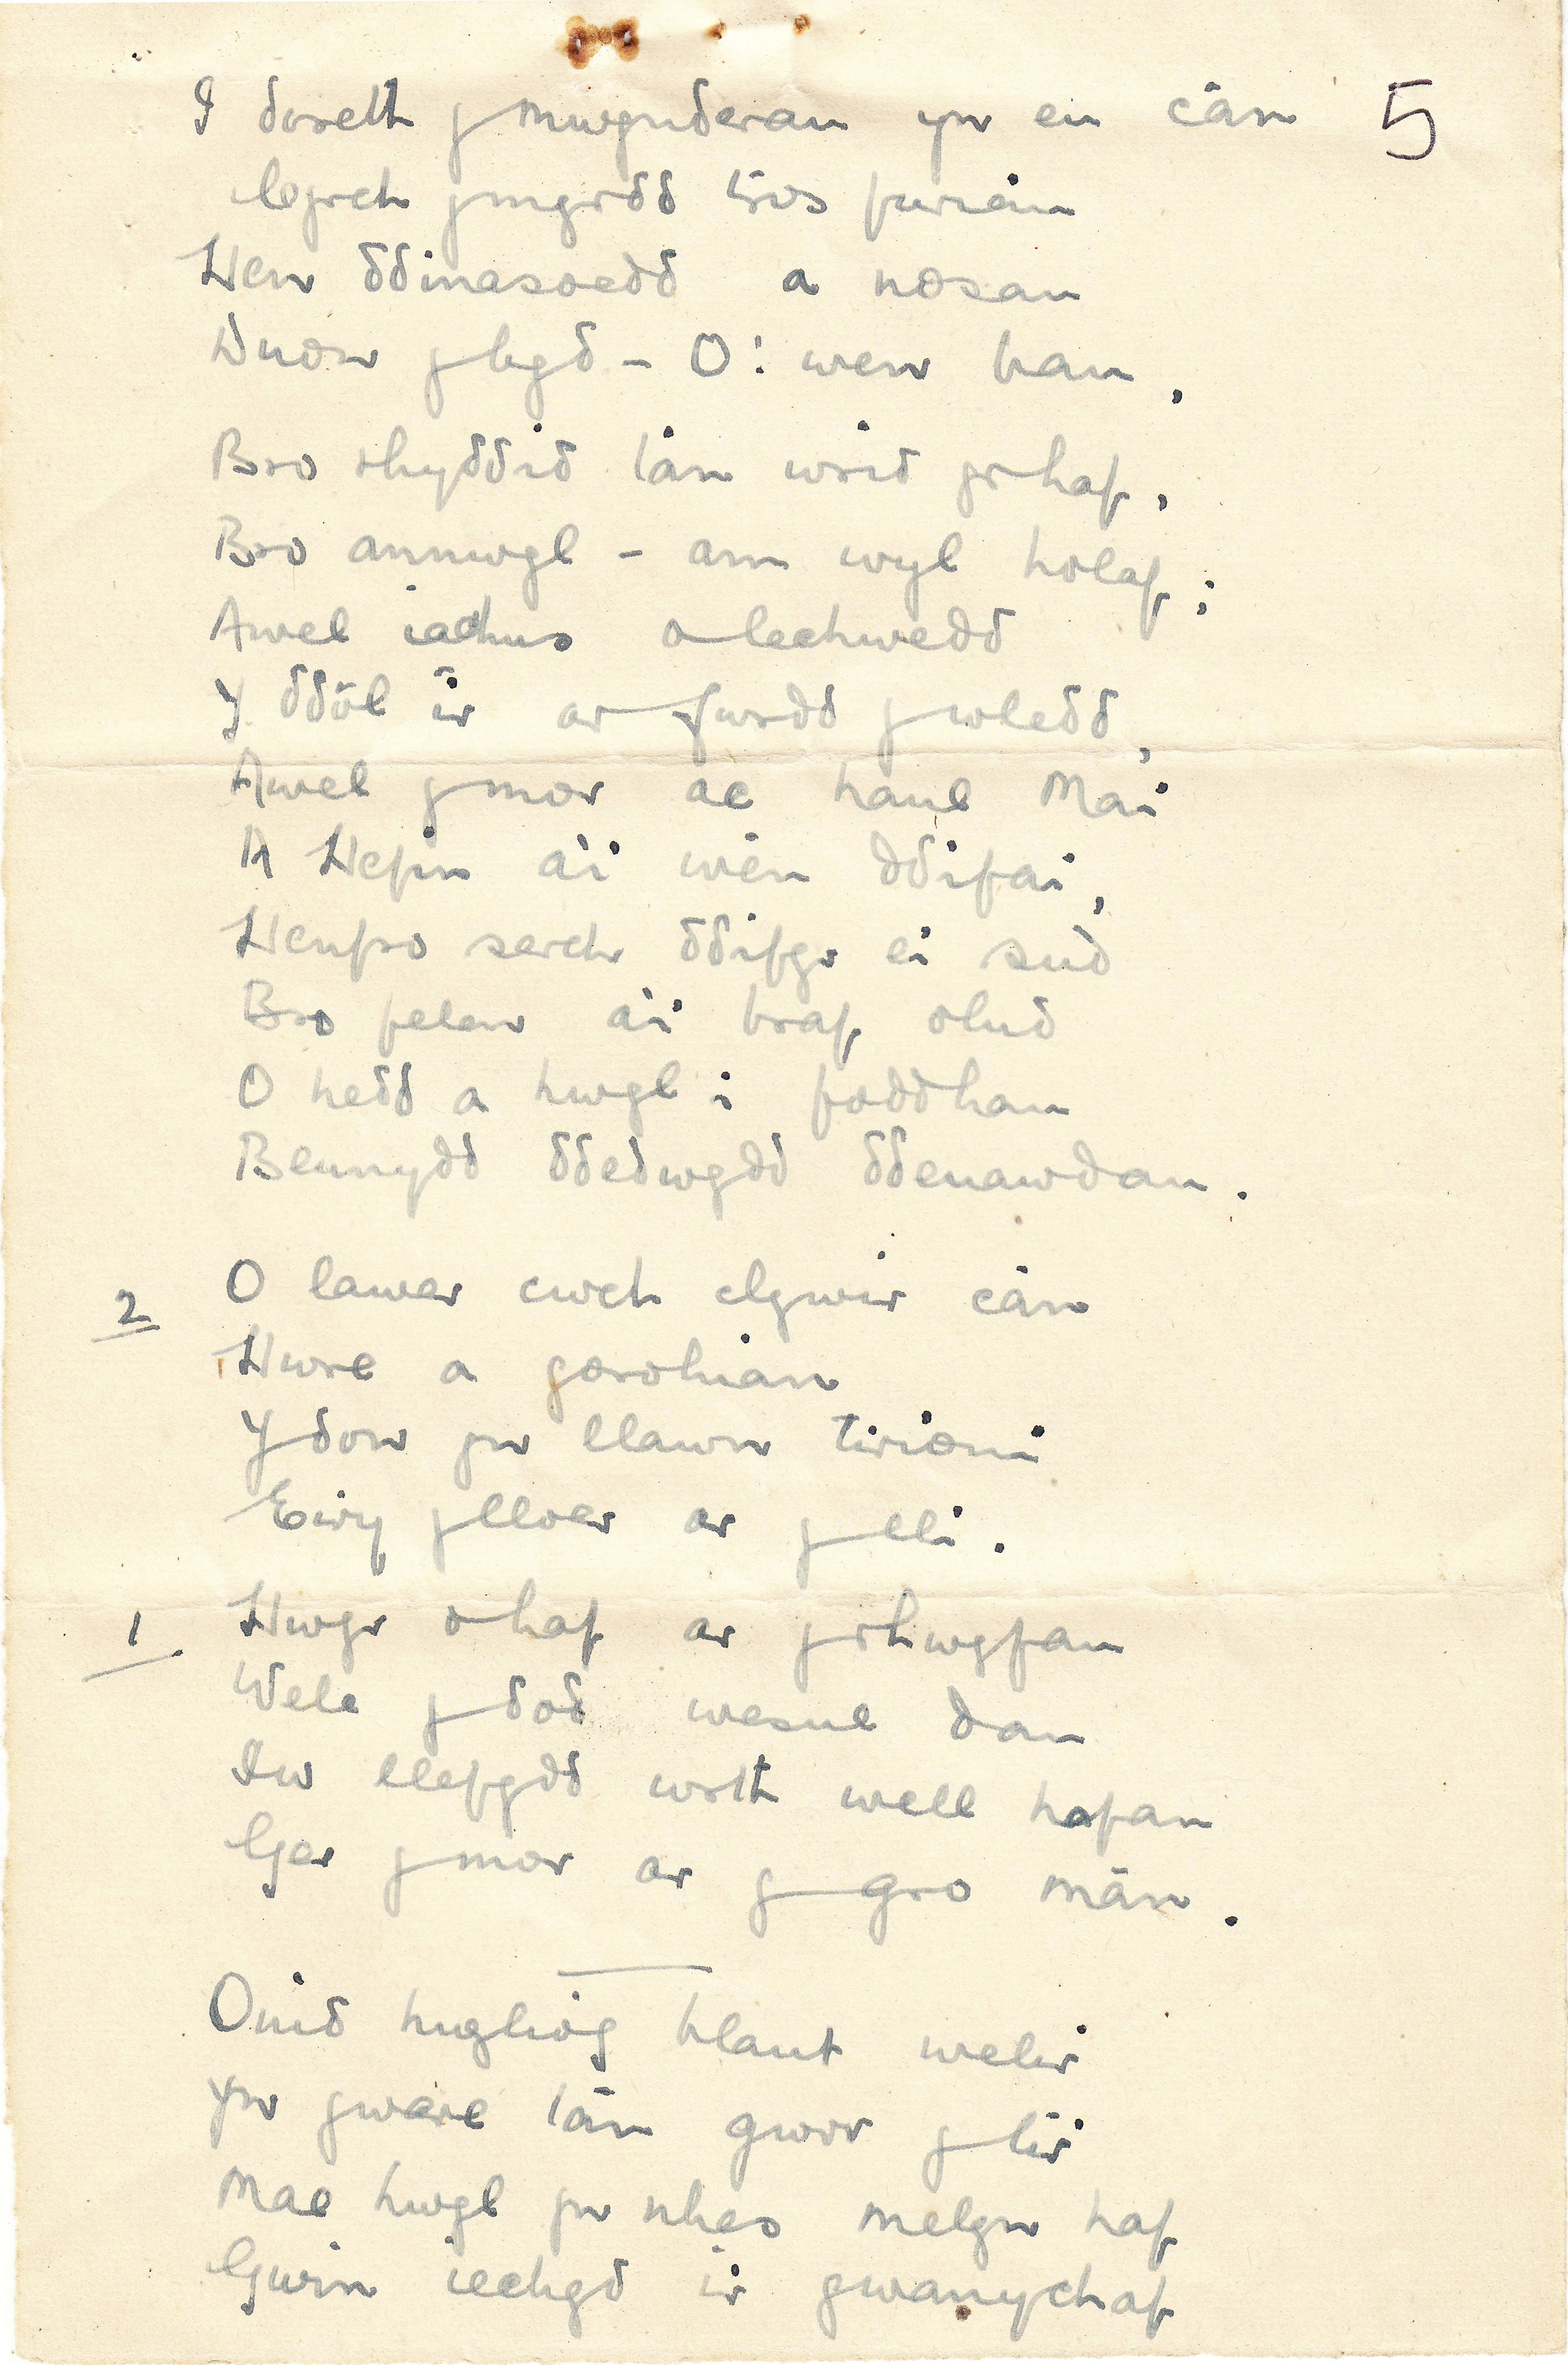 I doreth y mwynderau yn eu cân 5
Llyrch ymgrdd tros furiau
Hen ddinasoedd a nosau
Duon y byd – O! wen bau,
Bro rhyddid lân wrid yr haf,
Bro annwyl – am wyl holaf;
Awel iachus o lechwedd
Y ddôl ir ar fwrdd y wledd,
Awel y mor ac haul Mai
A Hefin a'i wên ddifai,
Henfro serch ddifyr ei sud
Bro felen a'i braf olud
O hedd a hwyl i foddhau
Beunydd ddedwydd ddeuawdau.
2 O lawer cwch clywir cân
Hwre a gorohian
Y don yn llawn tirioni
Eiry y lloer ar y lli.
1. Hwyr o haf ar y rhwyfau
Wele y dod wesul dau
Iw llefydd wrth well hafau
Ger y mor ar y gro mân.
Onid hwyliog blant welir
Yn gware lân gwrr y lir
Mae hwyl yn nhes melyn haf
Gwin iechyd ir gwanychaf